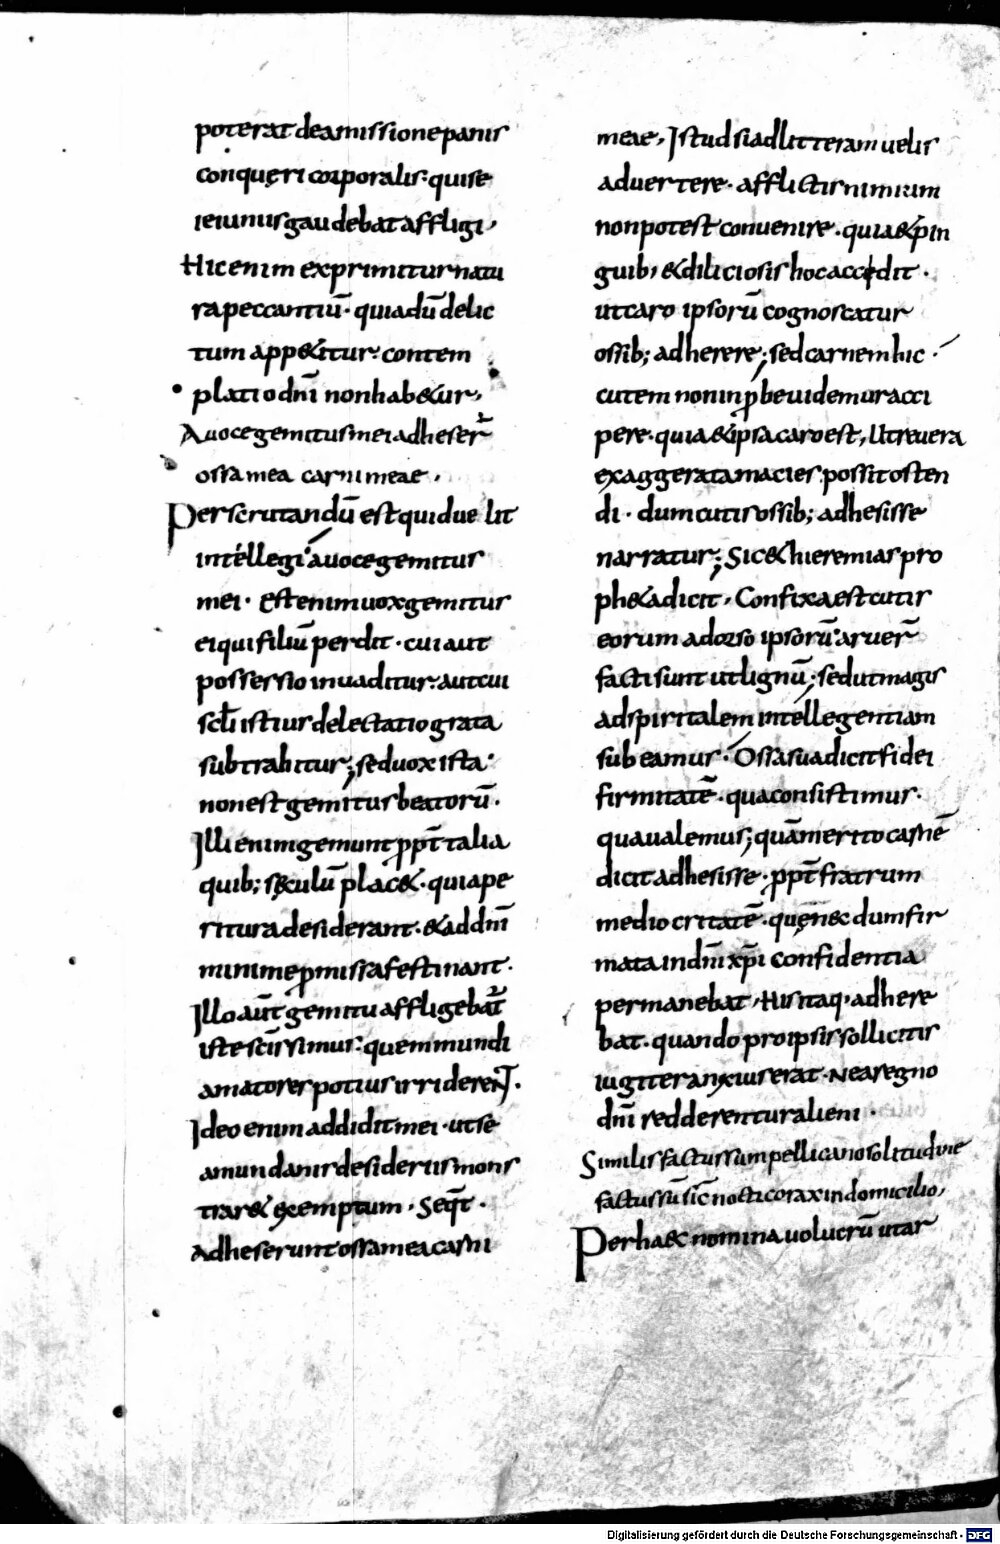 poterat deamissionepanis
conquęri corporalis· quise
ieiuniisgaudebataffligi,
Hicenim exprimiturnatu
rapeccantiū· quiadūdelic
tum app&itur· contem
platiodn̄i nonhab&ur,
Auocegemitusmeiadheser̄
ossamea carnimeae,
Perscrutandū estquiduelit
intellegi auocegemitus
mei· Estenimuoxgemitus
eiquifiliū perdit· cuiaut
possessioinuaditur· autcui
sclī istiusdelectatiograta
subtrahitur; seduoxista
nonestgemitusbeatorū·
Illienimgemuntpp̄t talia
quib; sęculū plac&· quiape
rituradesiderant· &addn̄m
minimepmissafestinant·
Illoaūt gemituaffligebat̄
istescīssimus· quemmundi
amatorespotiusirriderent·
Ideoenimaddiditmei· utse
amundanisdesideriismons
trar& exemptum· Seqt̄·
Adheseruntossameacarni
meae, Istudsiadlitteramuelis
aduertere· afflictisnimium
nonpotestconuenire· quia&pin
guib; &diliciosishocaccedit·
utcaro ipsorū cognoscatur
ossib; adherere; sedcarnemhic
cutem noninpbeuidemuracci
pere· quia&ipsacaroest, Utreuera
exaggeratamacies possitosten
di· dumcutisossib; adhesisse
narratur; Sic&hieremiaspro
ph&adicit, Confixaestcutis
eorum adosso ipsorū· aruer̄
factisunt utlignū; sedutmagis
adspiritalem intellegentiam
subeamus· Ossasuadicitfidei
firmitatē· quaconsistimus·
quaualemus; quāmeritocarnē
dicitadhesisse· pp̄t fratrum
mediocritatē· quęn&dumfir
mataindn̄i xp̄i confidentia
permanebat, Hisitaq, adhere
bat· quando proipsissollicitis
iugiteranxiuserat· Nearegno
dn̄i redderenturalieni·
Similisfactussumpellicanosolitudinie
factussū sic̄ nocticoraxindomicilio,
Perha&c nominauolucrū utar